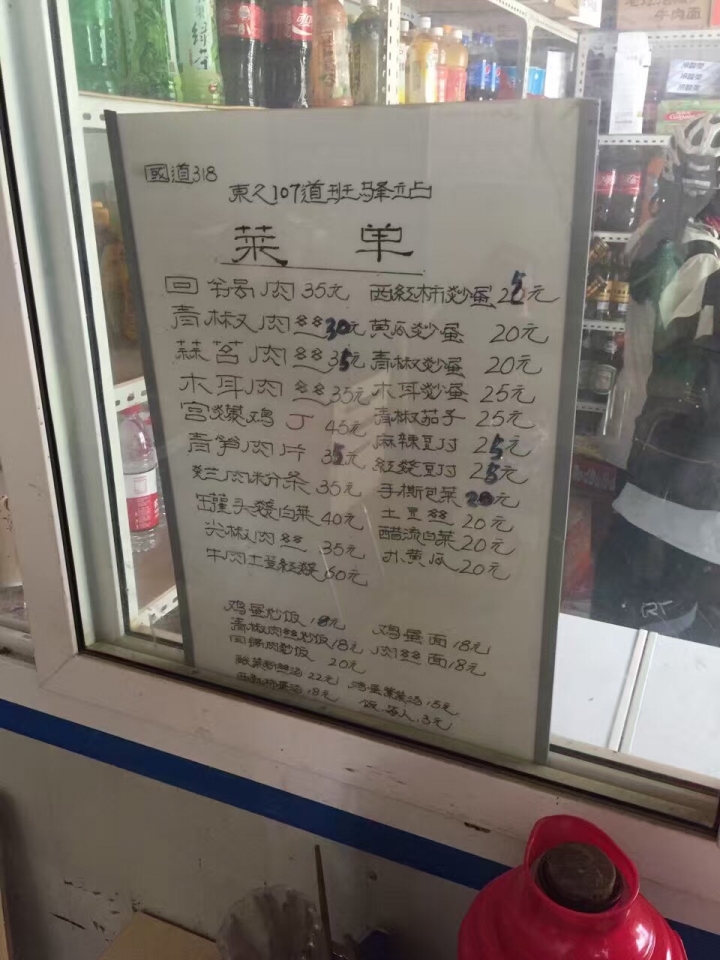 國道318
東久107道班驿站
菜 单
回锅肉 35元 西紅柿炒蛋 25元
青椒肉丝 30元 黄瓜炒蛋 20元
蒜苔肉丝 35元 青椒炒蛋 20元
木耳肉丝 35元 木耳炒蛋 25元
宫爆鸡丁 45元 青椒茄子 25元
青笋肉片 35元 麻辣豆付 25元
烂肉粉条 35元 紅燒豆付 25元
罐头燒白菜 40元 手撕包菜 20元
尖椒肉丝 35元 土豆丝 20元
牛肉土豆紅燒 60元 醋流白菜 20元
黄瓜 20元
鸡蛋炒饭 18元 鸡蛋面 18元
青椒肉丝炒饭 18元 肉丝面 18元
回锅肉炒饭 20元
酸菜粉丝汤 22元 15元
18元 饭.每人.3元